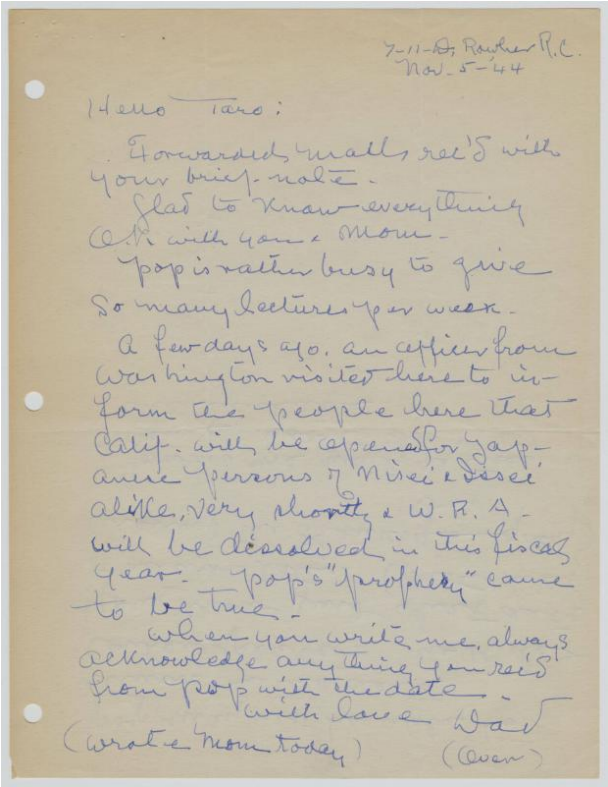 7-11-D, Rowher R.C.
Nov. 5-'44
Hello Taro:
Forwarded mails rec'd with
your brief note.
Glad to know everything
O.K. with you & Mom.
Pop is rather busy to give
so many lectures per week.
A few days ago, an officer from
Washington visited here to in-
form the people here that
Calif. will be opened for Jap-
anese persons of Nisei & Issei
alike, very shortly & W.R.A.
will be dissolved in this fiscal
year. Pop's "prophecy" came
to be true.
When you write me, always
acknowledge anything you rec'd
from Pop with the date.
With love Dad
(wrote Mom today) (Over)